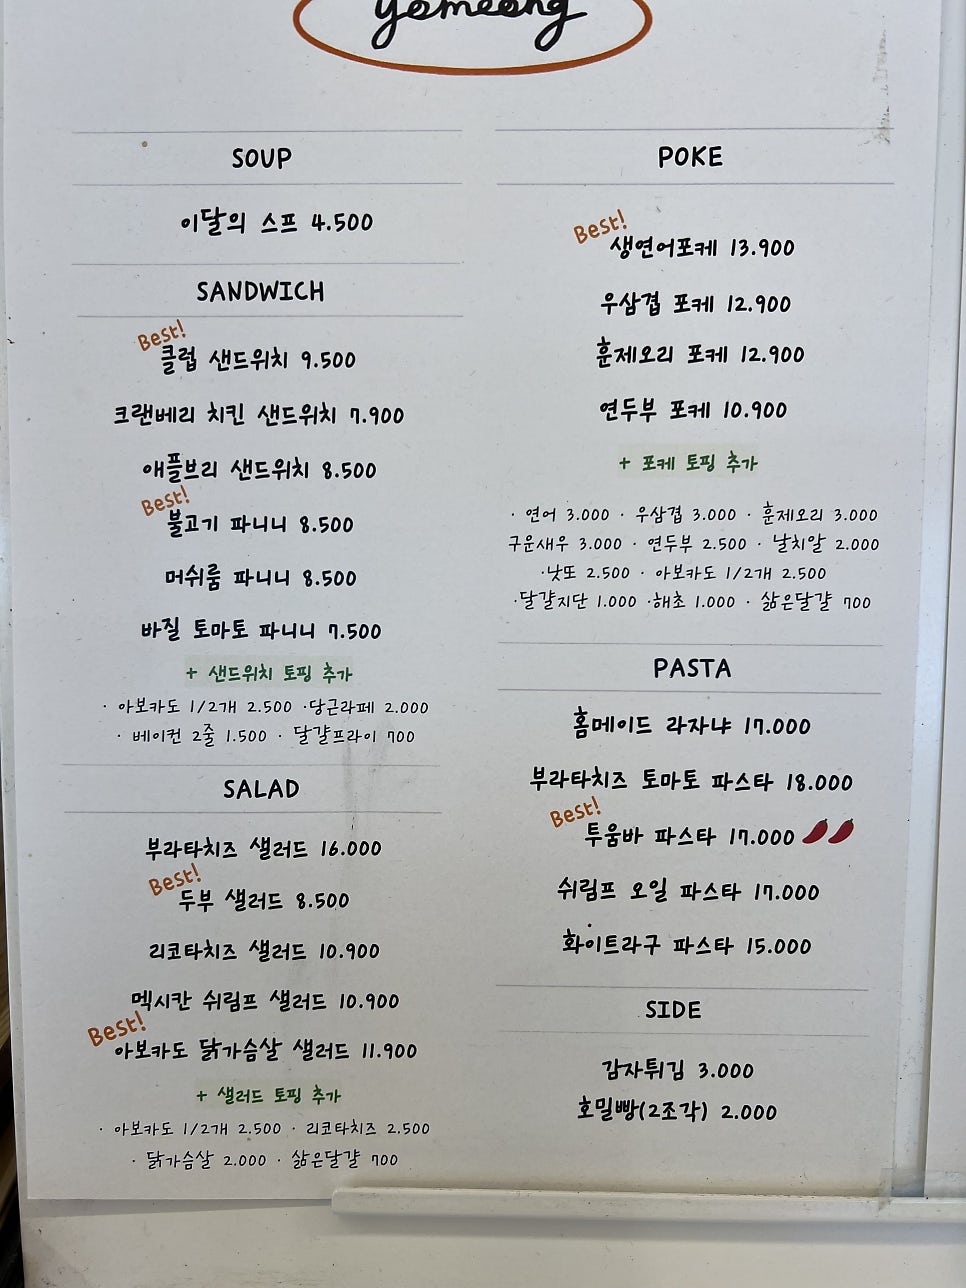 yomeong
SOUP
이달의 스프 4.500
SANDWICH
Best!
클럽 샌드위치 9.500
크랜베리 치킨 샌드위치 7.900
애플브리 샌드위치 8.500
Best!
불고기 파니니 8.500
머쉬룸 파니니 8.500
바질 토마토 파니니 7.500
+ 샌드위치 토핑 추가
· 아보카도 1/2개 2.500 ·당근라페 2.000
· 베이컨 2줄 1.500 · 달걀프라이 700
SALAD
부라타치즈 샐러드 16.000
Best!
두부 샐러드 8.500
리코타치즈 샐러드 10.900
멕시칸 쉬림프 샐러드 10.900
Best!
아보카도 닭가슴살 샐러드 11.900
+ 샐러드 토핑 추가
· 아보카도 1/2개 2.500 · 리코타치즈 2.500
· 닭가슴살 2.000 · 삶은달걀 700
POKE
Best!
생연어포케 13.900
우삼겹 포케 12.900
훈제오리 포케 12.900
연두부 포케 10.900
+ 포케 토핑 추가
· 연어 3.000 · 우삼겹 3.000 · 훈제오리 3.000
구운새우 3.000 · 연두부 2.500 · 날치알 2.000
·낫또 2.500 · 아보카도 1/2개 2.500
·달걀지단 1.000 ·해초 1.000 · 삶은달걀 700
PASTA
홈메이드 라자냐 17.000
부라타치즈 토마토 파스타 18.000
Best!
투움바 파스타 17.000
쉬림프 오일 파스타 17.000
화이트라구 파스타 15.000
SIDE
감자튀김 3.000
호밀빵(2조각) 2.000